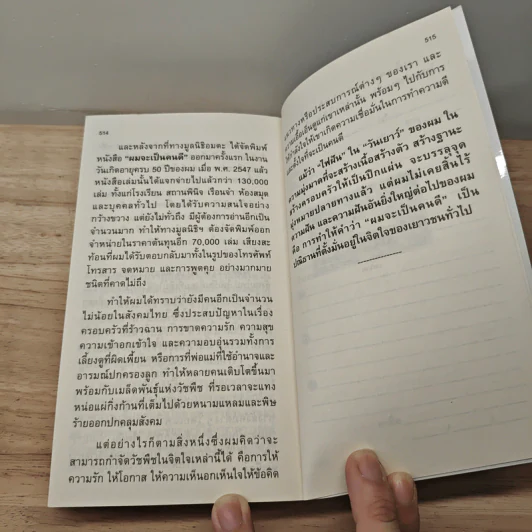 514
และหลังจากที่ทางมูลนิธิอมตะ ได้จัดพิมพ์
หนังสือ "ผมจะเป็นคนดี" ออกมาครั้งแรก ในงาน
วันเกิดอายุครบ 50 ปีของผม เมื่อ พ.ศ. 2547 แล้ว
หนังสือเล่มนั้นได้แจกจ่ายไปแล้วกว่า 130,000
เล่ม ทั้งแก่โรงเรียน สถานพินิจ เรือนจำ ห้องสมุด
และบุคคลทั่วไป โดยได้รับความสนใจอย่าง
กว้างขวาง แต่ยังไม่ทั่วถึง มีผู้ต้องการอ่านอีกเป็น
จำนวนมาก ทำให้ทางมูลนิธิฯ ต้องจัดพิมพ์ออก
จำหน่ายในราคาต้นทุนอีก 70,000 เล่ม เสียงสะ
ท้อนที่ผมได้รับตอบกลับมาทั้งในรูปของโทรศัพท์
โทรสาร จดหมาย และการพูดคุย อย่างมากมาย
ชนิดที่คาดไม่ถึง
ทำให้ผมได้ทราบว่ายังมีคนอีกเป็นจำนวน
ไม่น้อยในสังคมไทย ซึ่งประสบปัญหาในเรื่อง
ครอบครัวที่ร้าวฉาน การขาดความรัก ความสุข
ความเข้าอกเข้าใจ และความอบอุ่นรวมทั้งการ
เลี้ยงดูที่ผิดเพี้ยน หรือการที่พ่อแม่ที่ใช้อำนาจและ
อารมณ์ปกครองลูก ทำให้หลายคนเติบโตขึ้นมา
พร้อมกับเมล็ดพันธุ์แห่งวัชพืช ที่รอเวลาจะแทง
หน่อแผ่กิ่งก้านที่เต็มไปด้วยหนามแหลมและพิษ
ร้ายออกปกคลุมสังคม
แต่อย่างไรก็ตามสิ่งหนึ่งซึ่งผมคิดว่าจะ
สามารถกำจัดวัชพืชในจิตใจเหล่านี้ได้ คือการให้
ความรัก ให้โอกาส ให้ความเห็นอกเห็นใจให้ข้อคิด
515
แนวทางหรือประสบการณ์ต่างๆ ของเรา และ
ความเอื้อเอ็นดูแก่เขาเหล่านั้น พร้อมๆ ไปกับการ
ให้กำลังใจให้เขาเกิดความเชื่อมั่นในการทำความดี
และตั้งใจที่จะเป็นคนดี
แม้ว่า "ไฟฝัน" ใน "วันเยาว์" ของผม ใน
ความมุ่งมาดที่จะสร้างเนื้อสร้างตัว สร้างฐานะ
สร้างครอบครัวให้เป็นปึกแผ่น จะบรรลุจุด
มุ่งหมายปลายทางแล้ว แต่ผมไม่เคยสิ้นไร้
ความฝัน และความฝันอันยิ่งใหญ่ต่อไปของผม
คือ การทำให้คำว่า "ผมจะเป็นคนดี" เป็น
ปณิธานที่ตั้งมั่นอยู่ในจิตใจของเยาวชนทั่วไป